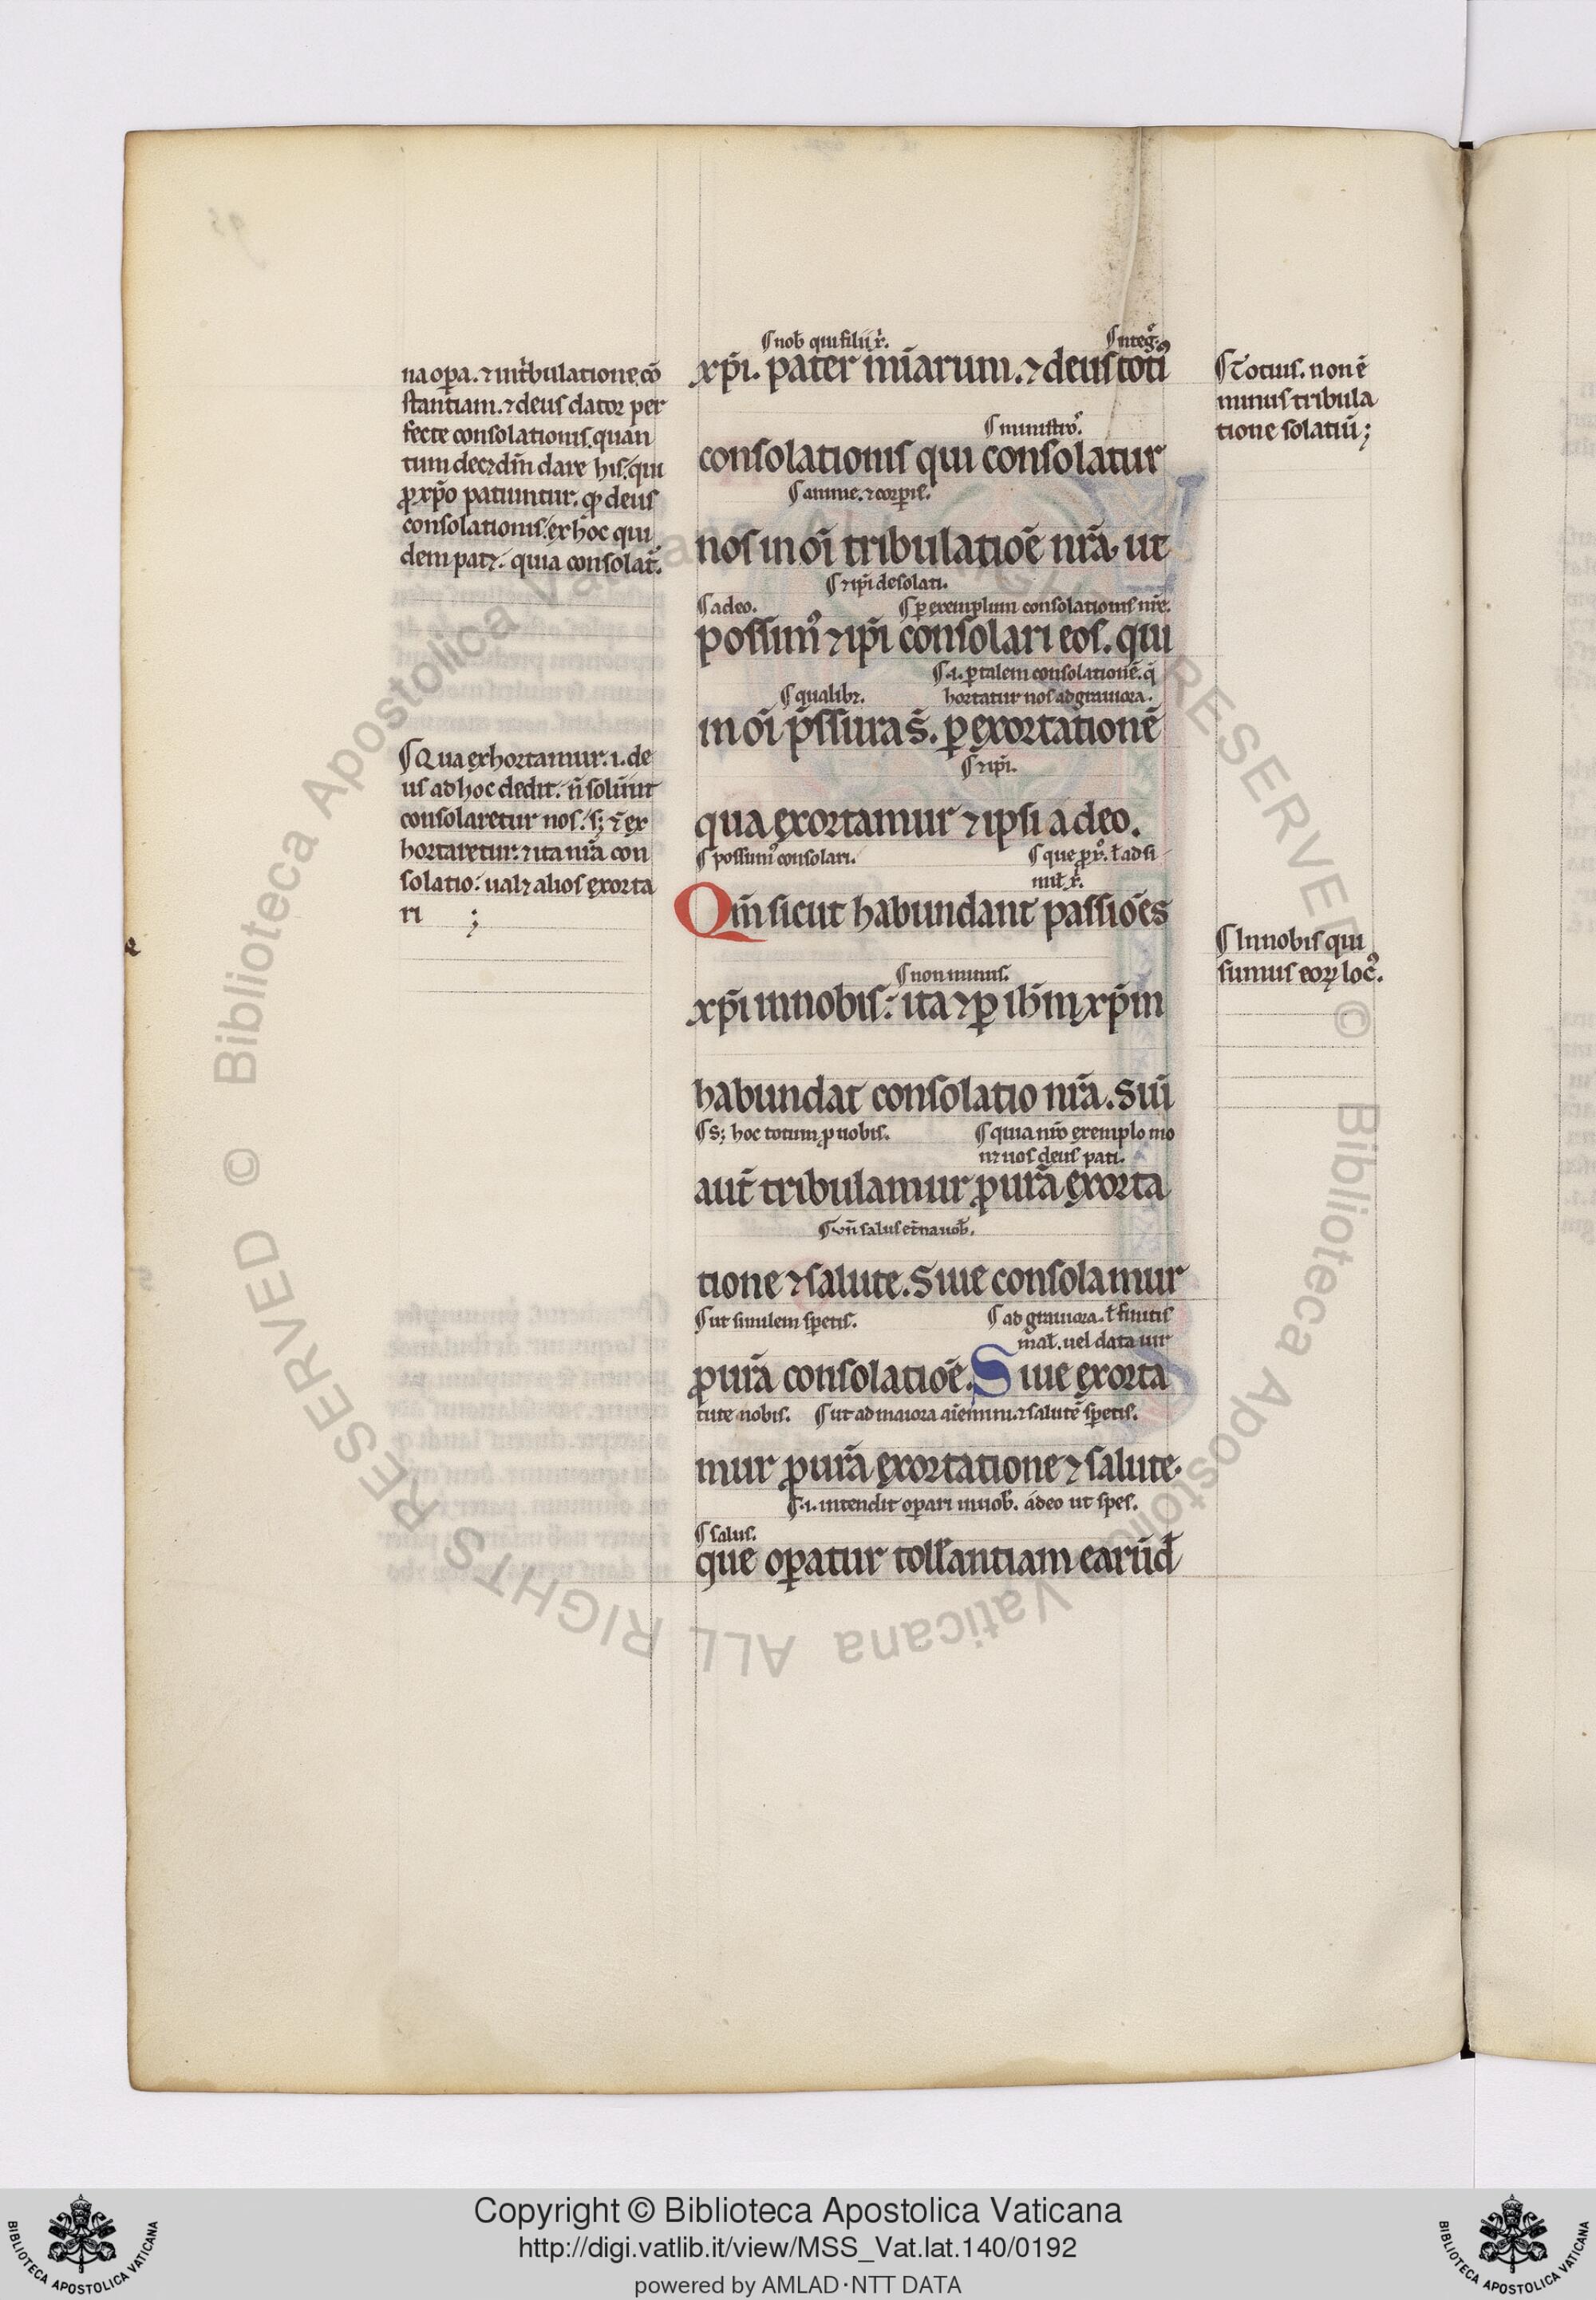 na op̄a. ⁊ int̄bulatione cō
stantiam. ⁊ deus dator per
fecte consolationis. quan
tum decꝫ dm̄ dare his. qui
ꝓ xp̄o patiuntur. qd̄ deus
consolationis. ex hoc qui
dem patꝫ. quia consolat̄.
¶ Qua exhortamur. i. de
us ad hoc dedit. ñ solū ut
consolaretur nos. sꝫ ⁊ ex
hortaretur. ⁊ ita nr̄a con
solatio. ualꝫ alios exorta
ri ;
¶ nob̄ qui filii. ¶ inteḡ.
xp̄i. pater mīarum. ⁊ deus toti꙯
¶ ministro꙯.
consolationis qui consolatur
¶ anime. ⁊ corꝑis.
nos in oī tribulatiōe nr̄a. ut
¶ ⁊ ip̄i desolati.
¶ a deo. ¶ ꝑ exemplum consolationis nr̄e.
possim꙯ ⁊ ip̄i consolari eos. qui
¶ .i. ꝑ talem consolationē. q̄
¶ qualibꝫ. hortatur nos ad grauiora.
in oī p̄ssura s̄. ꝑ exortationē
¶ ⁊ ip̄i.
qua exortamur ⁊ ipsi a deo.
¶ possum꙯ consolari. ¶ que ꝓ
Qm̄ sicut habundant passiōes
¶ non minus.
xp̄i in nobis. ita ⁊ ꝑ ih̄m xp̄m
habundat consolatio nr̄a. Siū
¶ Sꝫ hoc totum ꝓ uobis. ¶ quia nr̄o exemplo mo
nꝫ uos deus pati.
aut̄ tribulamur ꝓ ur̄a exorta
¶ vn̄ salus et̄na uob̄.
tione ⁊ salute. Siue consolamur
¶ ut similem sꝑetis. ¶ ad grauiora. ł finitis
mał. uel data uir
ꝓ ur̄a consolatiōe. Siue exorta
tute nobis. ¶ ut ad maiora aīemini. ⁊ salutē sꝑetis.
mur ꝓ ur̄a exortatione ⁊ salute.
¶ .i. intendit oꝑari in uob̄. a deo ut spes.
¶ salus.
que oꝑatur toll̄antiam earūd̄
¶ Totius. non ē
minus tribula
tione solatiū;
¶ In nobis qui
sumus eoꝝ loc꙯.
© Biblioteca Apostolica Vaticana ALL RIGHTS RESERVED © Biblioteca Apostolica Vaticana ALL RIGHTS RESERVED
Copyright © Biblioteca Apostolica Vaticana
http://digi.vatlib.it/view/MSS_Vat.lat.140/0192
powered by AMLAD·NTT DATA
BIBLIOTECA APOSTOLICA VATICANA
BIBLIOTECA APOSTOLICA VATICANA